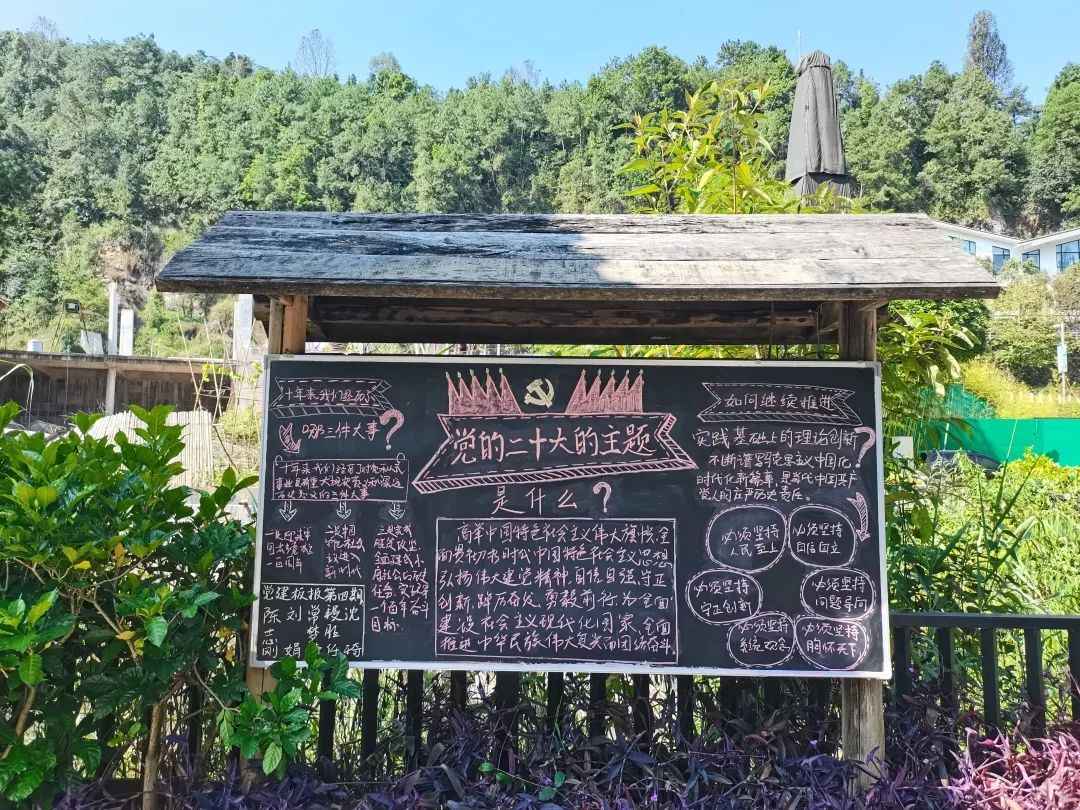 十年来我们经历
哪三件大事?
十年来我们经历了对党和人民
事业具有重大现实意义和深远
历史意义的三件大事
一是迎来中
国共产党成立
一百周年
二是中国
特色社会主
义进入
新时代
三是完成
脱贫攻坚、
全面建成小
康社会的历史
任务,实现第
一个百年奋斗
目标。
党建板报第四期
陈 刘 常 禝 沈
志 梦 胜
刚 娟 任 琦
党的二十大的主题
是什么?
高举中国特色社会主义伟大旗帜,全
面贯彻新时代中国特色社会主义思想
弘扬伟大建党精神,自信自强、守正
创新,踔厉奋发、勇毅前行为全面
建设社会主义现代化国家、全面
推进中华民族伟大复兴而团结奋斗。
如何继续推进
实践基础上的理论创新?
不断谱写马克思主义中国化
时代化新篇章,是当代中国共产
党人的庄严历史责任。
必须坚持
人民至上
必须坚持
自信自立
必须坚持
守正创新
必须坚持
问题导向
必须坚持
系统观念
必须坚持
胸怀天下